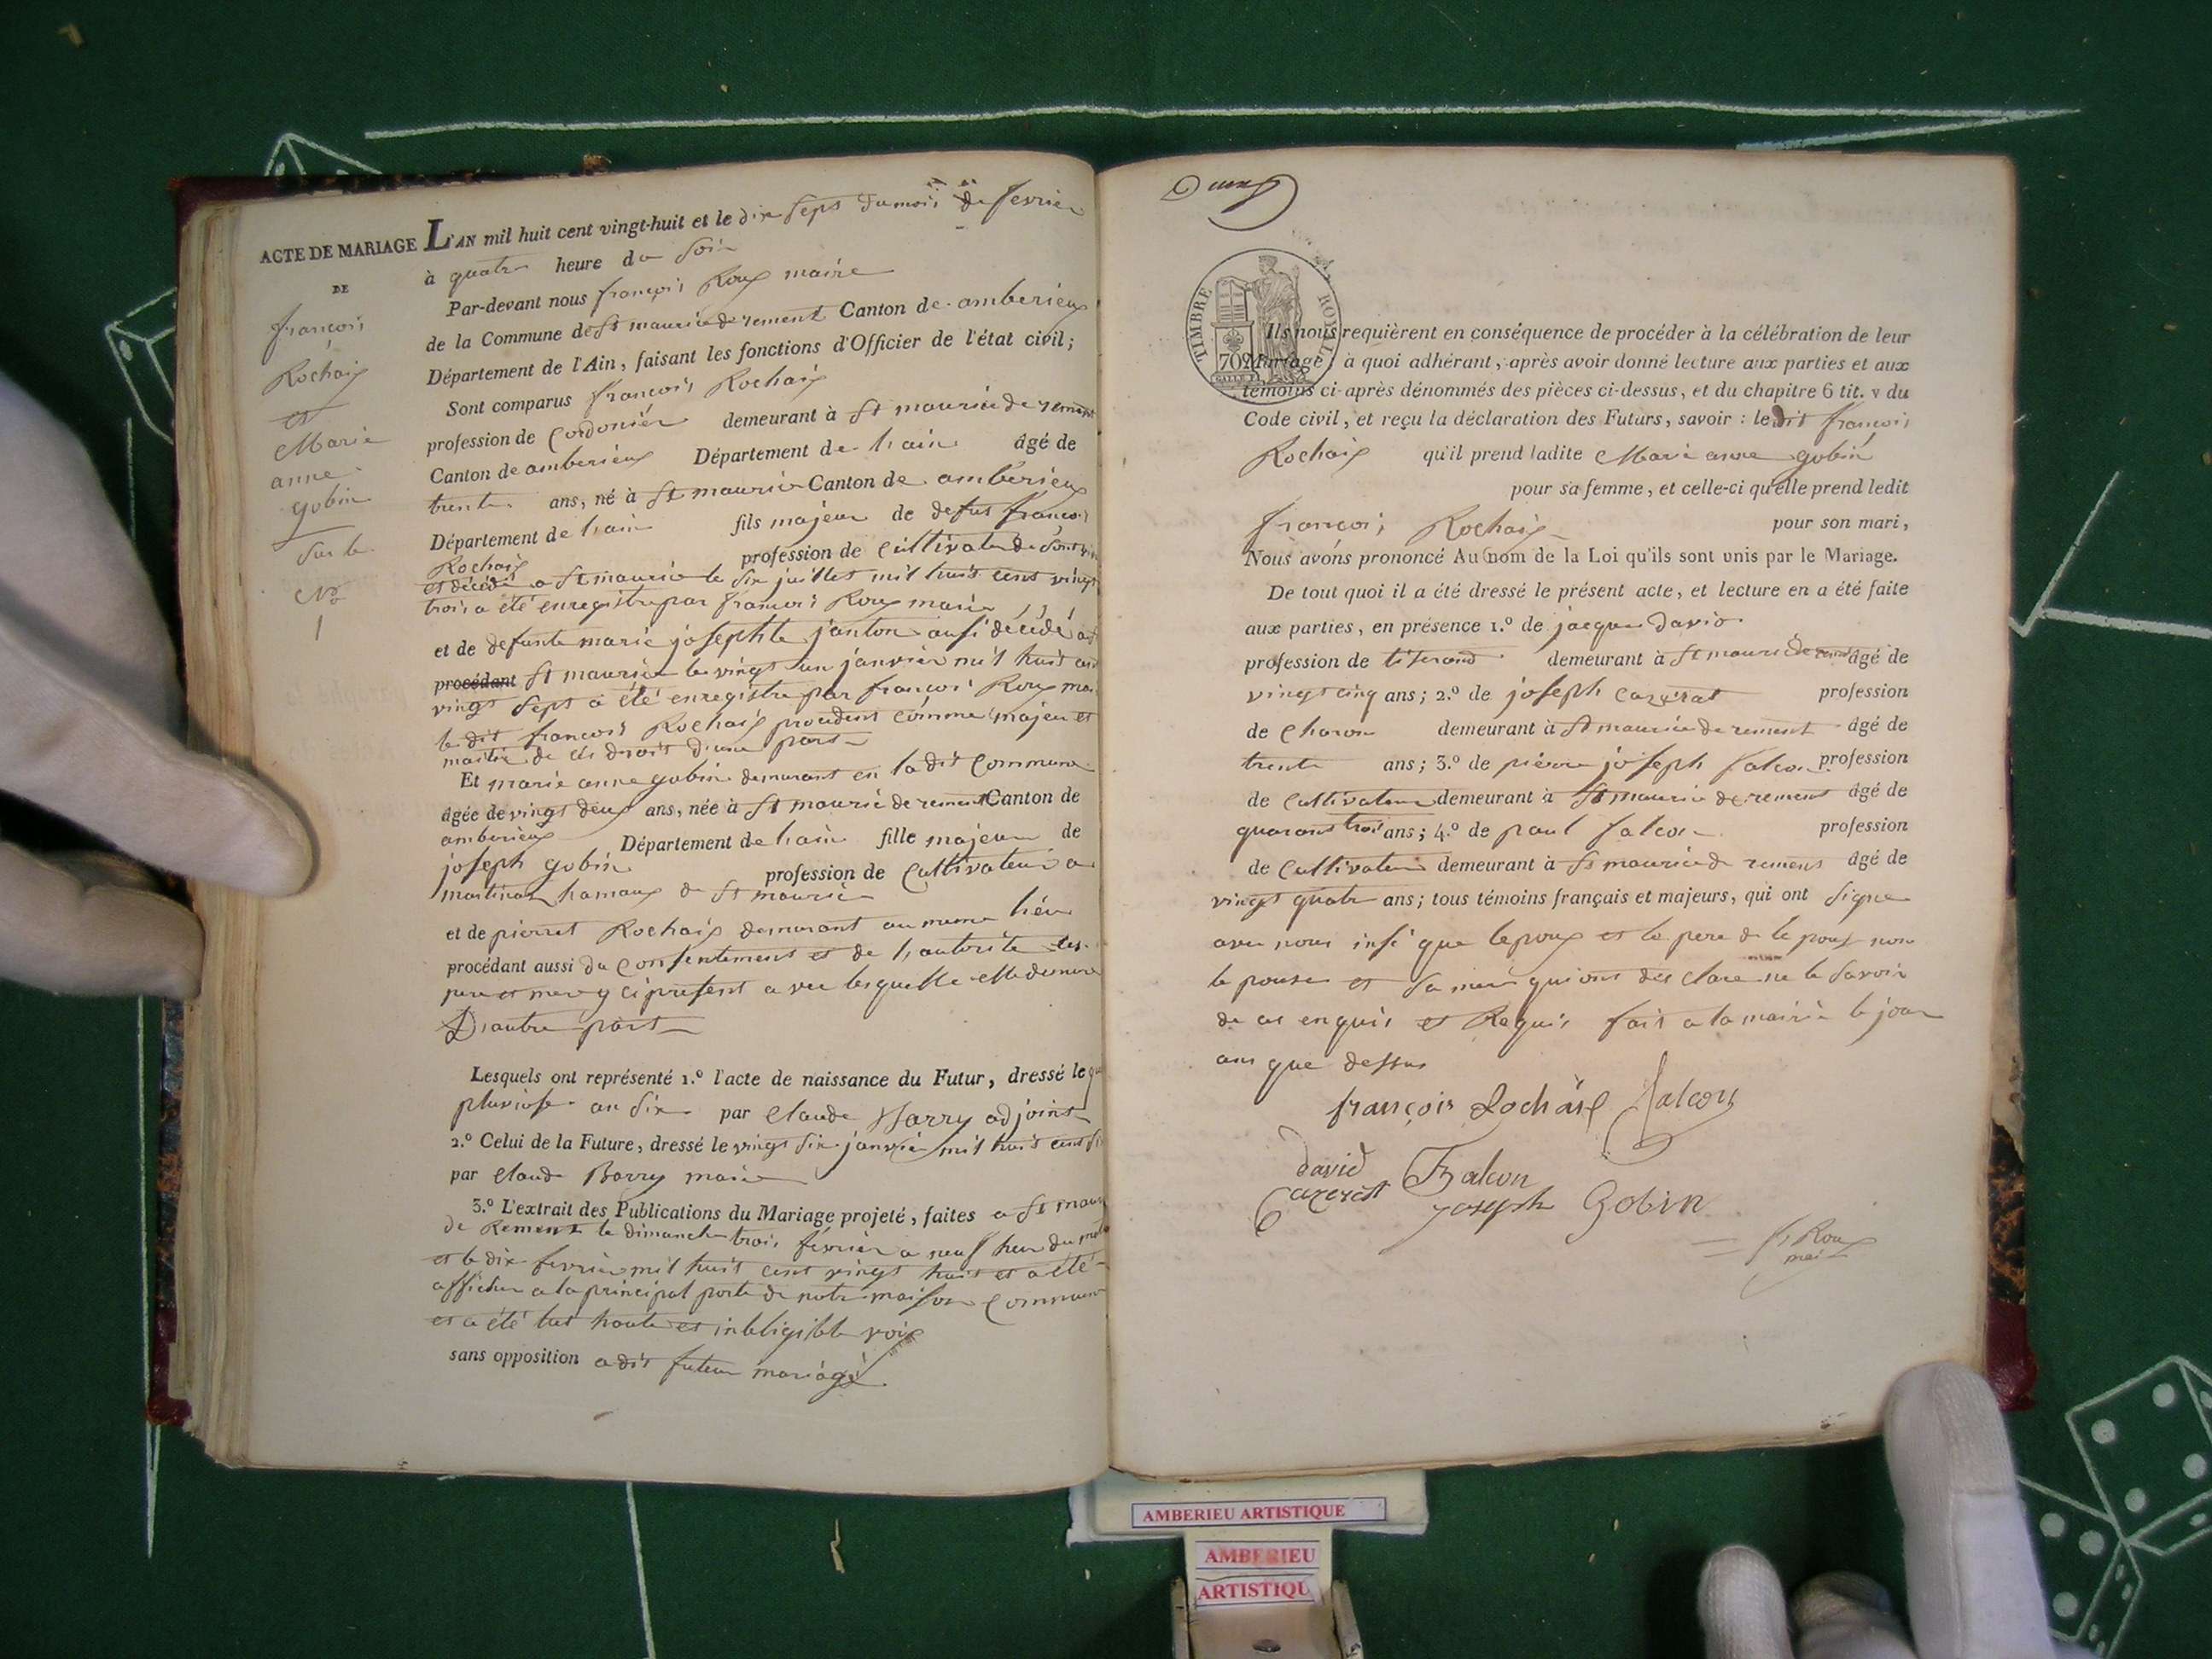 ACTE DE MARIAGE
DE
françois
Rochaix
et
Marie
anne
gobin
sur le
No
1
L'AN mil huit cent vingt-huit et le dix sept du mois de fevrier
à quatre heure du soir
Par-devant nous françois Roux maire
de la Commune de St maurice de rement Canton de amberieux
Département de l'Ain, faisant les fonctions d'Officier de l'état civil;
Sont comparus françois Rochaix
profession de Cordonier demeurant à St maurice de rement
Canton de amberieux Département de lain âgé de
trente ans, né à St maurice Canton de amberieux
Département de lain fils majeur de defus françois
Rochaix profession de Cultivateur de
et décédé a St maurice le six juillet mil huit cent vingt
trois a été enregistre par françois Roux maire
et de defunte marie josephte janton ausi décédé
procédant St maurice le vingt un janvier mil huit cen
vingt sept a été enregistre par françois Roux mai
le dit francois Rochaix procedent comme majeur et
maitre de ces droit d'une part
Et marie anne gobin demurant en la dit Commune
âgée de vingt deux ans, née à St maurice de rement Canton de
amberieux Département de lain fille majeur de
joseph gobin profession de Cultivateur a
martinaz hamaux de St maurice
et de pierret Rochaix demurant au meme lieu
procédant aussi du Consentement et de lautorite des
pere et mere y ci present avec lesquelle elle demure
D'autre part
Lesquels ont représenté 1.º l'acte de naissance du Futur, dressé le
pluviose an six par Claude Barry adjoint
2.º Celui de la Future, dressé le vingt six janvier mil huit cent six
par Claude Barry maire
3.º L'extrait des Publications du Mariage projeté, faites a St mau
de Rement le dimanche trois fevrier a neuf heur du
et le dix fevrier mil huit cent vingt huit et a été
afficher a la principal porte de notre maison Commune
et a été lut haute et inteligible voix
sans opposition a dit futeur mariage
TIMBRE ROYAL
70
Ils nous requièrent en conséquence de procéder à la célébration de leur
Mariage; à quoi adhérant, après avoir donné lecture aux parties et aux
témoins ci-après dénommés des pièces ci-dessus, et du chapitre 6 tit. v du
Code civil, et reçu la déclaration des Futurs, savoir : le dit françois
Rochaix qu'il prend ladite Marie anne gobin
pour sa femme, et celle-ci qu'elle prend ledit
françois Rochaix pour son mari,
Nous avons prononcé Au nom de la Loi qu'ils sont unis par le Mariage.
De tout quoi il a été dressé le présent acte, et lecture en a été faite
aux parties, en présence 1.º de jacque david
profession de tiserand demeurant à St maurice de rement âgé de
vingt cinq ans; 2.º de joseph cazerat profession
de Charon demeurant à St maurice de rement âgé de
trente ans; 3.º de pierre joseph falcon profession
de Cultivateur demeurant à St maurice de rement âgé de
quarant trois ans; 4.º de paul falcon profession
de Cultivateur demeurant à St maurice de remens âgé de
vingt quatre ans; tous témoins français et majeurs, qui ont signe
avec nous insi que lepoux et le pere de le poux non
le pouse et sa mere qui ont des clare ne le savoir
de ce enquis et Requis fait a la mairie le jour
ans que dessus
françois Rochaix falcon
david Falcon
Cazerat joseph Gobin
fs Roux
mai
AMBERIEU ARTISTIQUE
AMBERIEU
ARTISTIQU